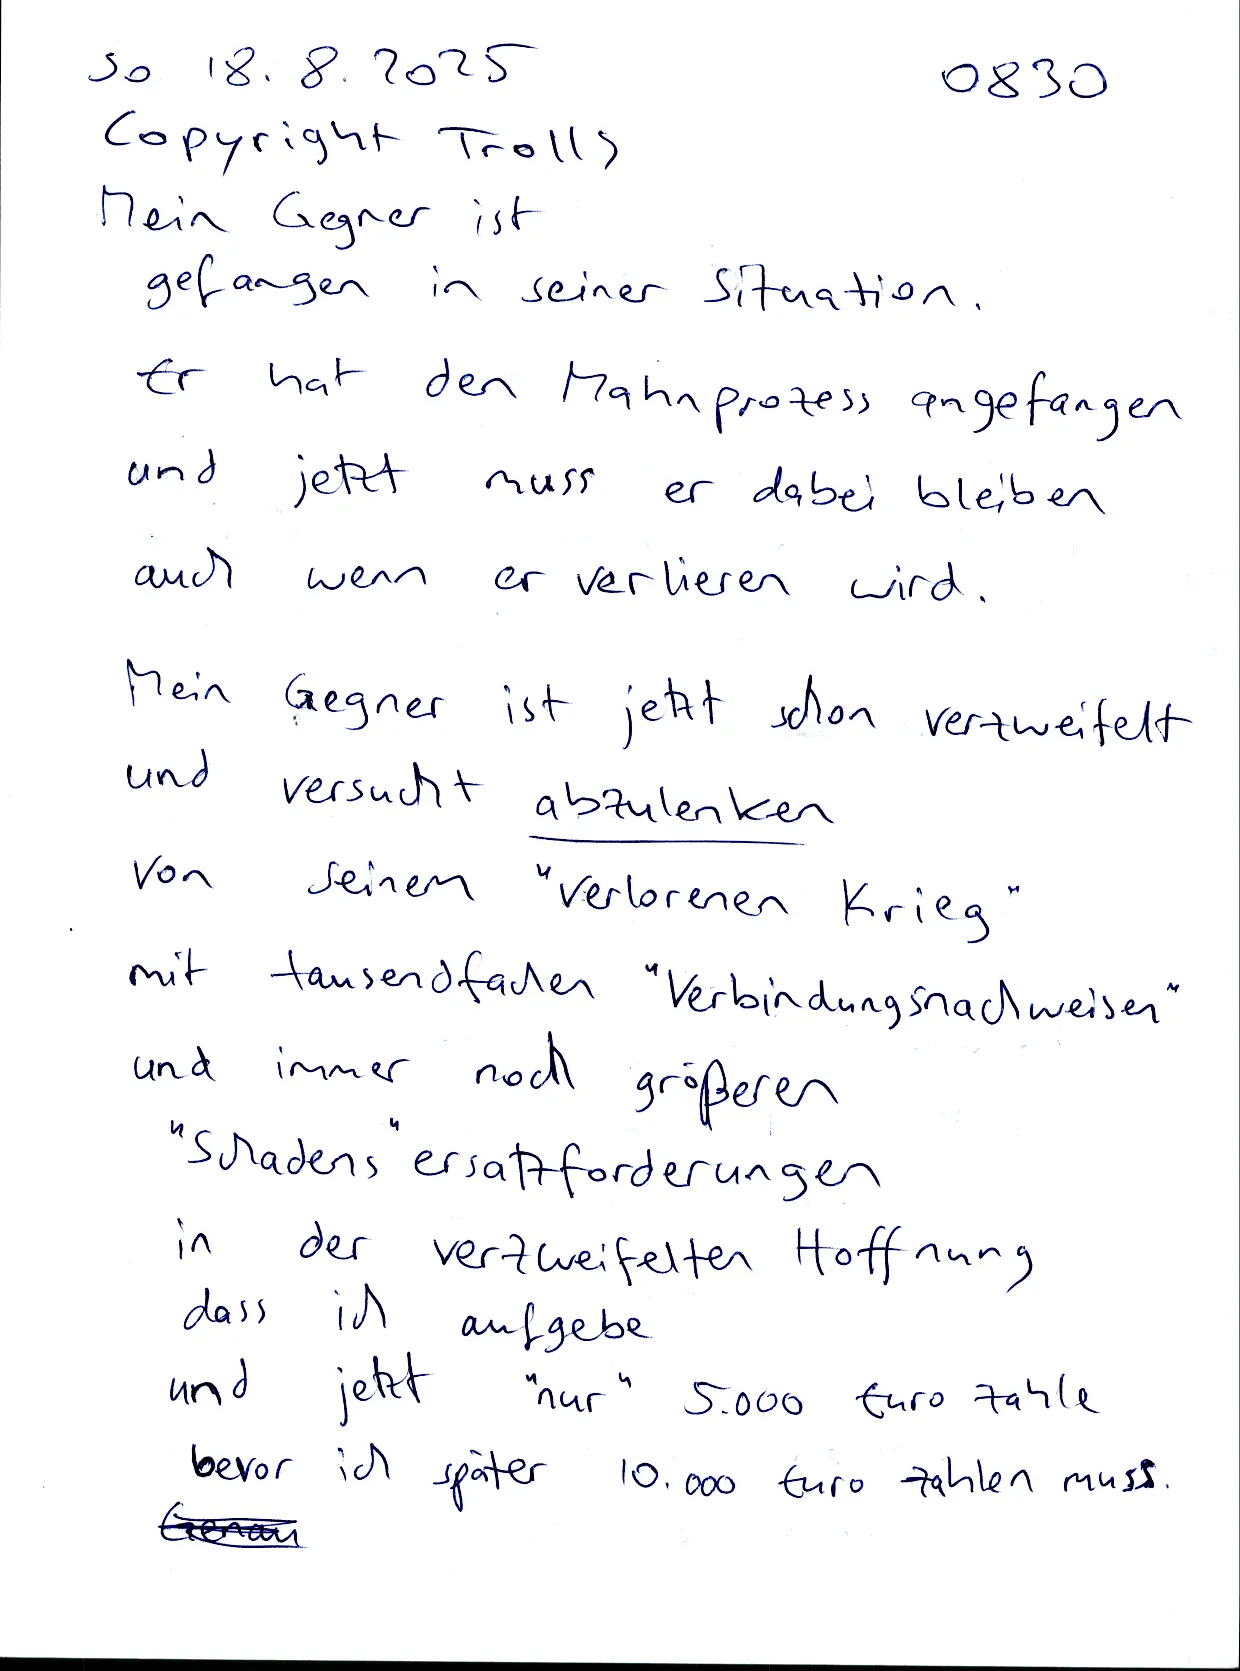 So 18.8.2025 0830
Copyright Trolls
Mein Gegner ist
gefangen in seiner Situation.
Er hat den Mahnprozess angefangen
und jetzt muss er dabei bleiben
auch wenn er verlieren wird.
Mein Gegner ist jetzt schon verzweifelt
und versucht abzulenken
von seinem "verlorenen Krieg"
mit tausendfachen "Verbindungsnachweisen"
und immer noch größeren
"Schadens"ersatzforderungen
in der verzweifelten Hoffnung
dass ich aufgebe
und jetzt "nur" 5.000 Euro zahle
bevor ich später 10.000 Euro zahlen muss.
Genau